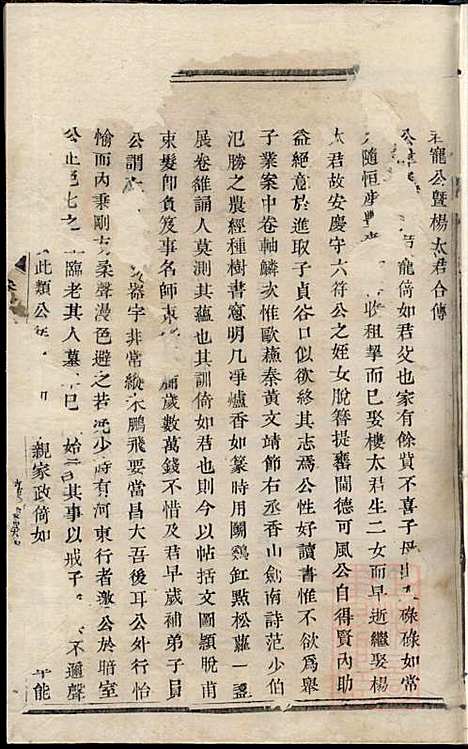 寵公曁楊太君合傳
寵倚如君父也家有餘貲不喜子母 碌碌如常
隨恒 收租拏而已娶樓太君生二女而早逝繼娶楊
太君故安慶守六符公之姪女脫簪提甕閫德可風公自得賢內助
益絕意於進取子貞谷口似欲終其志焉公性好讀書惟不欲爲舉
子業案中卷軸鱗次惟歐蘓秦黃文靖節右丞香山劍南詩范少伯
氾勝之農經種樹書窻明几凈爐香如篆時用鬭鷄缸點松蘿一盞
展卷維誦人莫測其蘊也其訓倚如君也則今以帖括文圖頴脫甫
束髮卽負笈事名師 歲數萬錢不惜及君早歲補弟子員
公謂 器宇非常縱 鵬飛要當昌大吾後耳公外行怡
愉而內秉剛 柔聲漫色避之若 少時有河東行者激 公於暗室
公正色 臨老其人墓 已 始 其事以戒子 不邇聲
此類公 親家政倚如 能